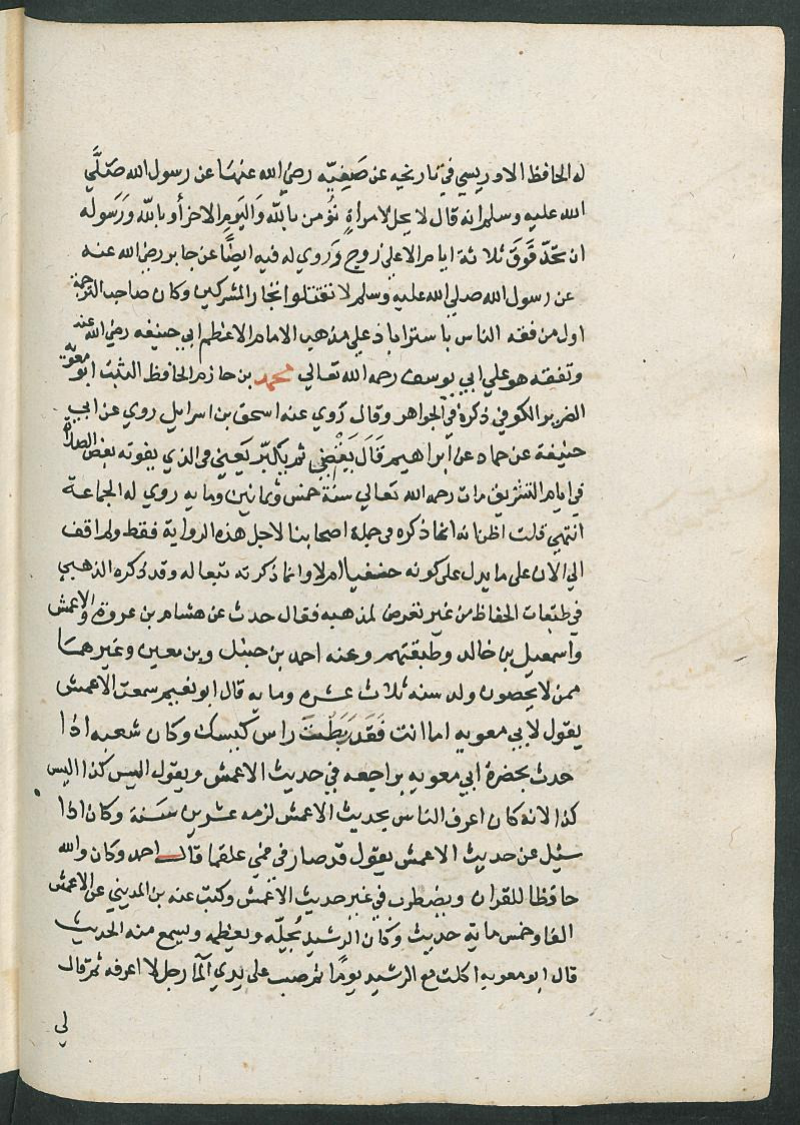 له الحافظ الادريسي في تاريخه عن صَفِيّه رضي الله عنها عن رسول الله صَلَّي
الله عليه وسلم انه قال لا يحل لامراةٍ تؤمن بالله وَاليَوم الاخر أو بالله وَرَسوله
ان تحّدّ فَوقَ ثلاثة ايام الا علي زوج وَروي له فيه ايضًا عن جابر رضي الله عنه
عن رسول الله صلي الله عليه وسلم لا تقتلوا تجار المشركين وكان صاحب الترجمة
اول من فقه الناس باستراباد علي مذهب الامام الاعظم ابي حنيفه رضي الله عنه
وتفقه هو علي ابي يوسف رحمه الله تعالي محمد بن حازم الحافظ الثبت ابو معويه
الضرير الكوفي ذكره في الجواهر وقال رَوي عنه اسحق بن اسراىل روي عن ابي
حنيفة عن حماد عن ابراهيم قَالَ يَقْضِي ثم يكبّر يَعني في الذي يفوته بعض الصلاة
في ايام التشريق مات رحمه الله تعالي سنة خمس وثمانين ومايه روي له الجماعة
انتهي قلت اظن انه انما ذكره في جملة اصحابنا لاجل هذه الرواية فقط ولم اقف
الي الان علي ما يدل علي كونه حنفيا ام لا وانما ذكرته تبعا له وقد ذكره الذهبي
في طبقات الحفاظ من غير تعرض لمذهبه فقال حدث عن هشام بن عروة والاعمش
واسمعيل بن خالد وطبقتهم وعنه احمد بن حنبل وبن معين وغيرهما
ممن لا يحصون ولد سنه ثلاث عشره ومايه قال ابو نعيم سمعت الاعمش
يقول لابي معويه اما انت فَقَد رَبَطتَ راس كبسك وكان شعبه اذا
حدث بحضرة ابي معويه يراجعه في حديث الاعمش ويقول اليس كذا اليس
كذا لانه كان اعرف الناس بحديث الاعمش لزمه عشرين سَنة وكان اذا
سئل عن حديث الاعمش يقول قد صار في فمي علقما قال احمد وكان والله
حافظا للقران ويضطرب في غير حديث الاعمش وكتب عنه بن المديني عن الاعمش
الفا وخمس مايه حديث وكان الرشيد يُجلّه ويعظمه ويسمع منه الحديث
قال ابو معويه اكلت مع الرشيد يومًا ثم صب علي يدي المآ رجل لا اعرفه ثم قال
لي